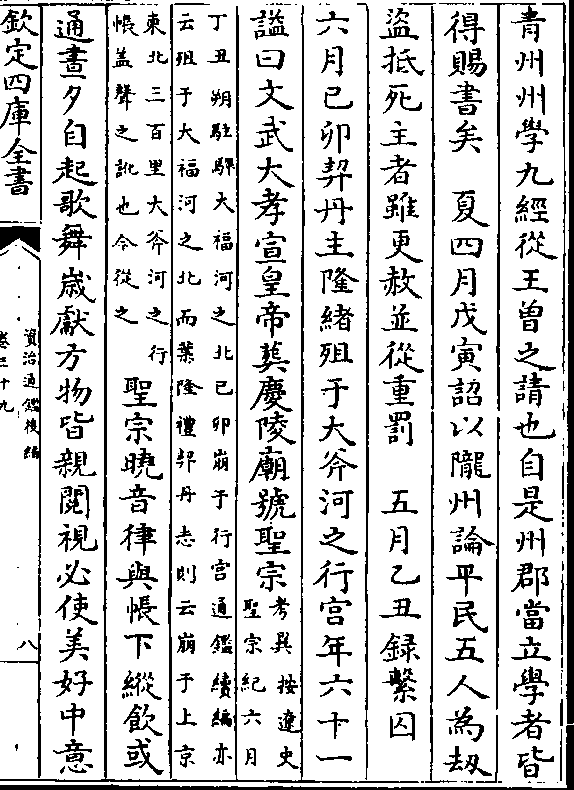 青州州學九經從王曾之請也自是州郡當立學者皆
得賜書矣　夏四月戊寅詔以隴州論平民五人為刼
盜抵死主者雖更赦並從重罰　五月乙丑録繫囚
六月己卯契丹主隆緒殂于大斧河之行宫年六十一
諡曰文武大孝宣皇帝葬慶陵廟號聖宗
考異按遼史
聖宗紀六月
丁丑朔駐驆大福河之北已卯崩于行宫通鑑續編亦
云殂于大福河之北而葉隆禮契丹志則云崩于上京
東北三百里大斧河之行
帳盖聲之訛也今從之
聖宗曉音律與帳下縱飲或
通晝夕自起歌舞嵗獻方物皆親閲視必使美好中意
欽定四庫全書
資治通鑑後編
卷三十九
八